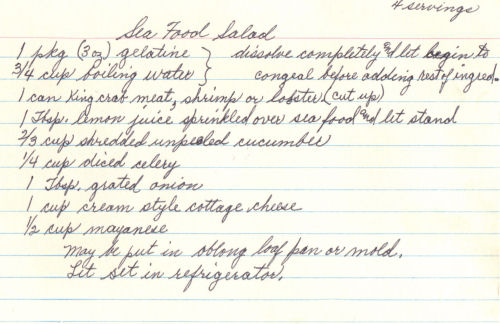 4 servings
Sea Food Salad
1 pkg (3 oz) gelatine } dissolve completely and let begin to
3/4 cup boiling water } congeal before adding rest of ingred.
1 can King crab meat, shrimp or lobster (cut up)
1 Tbsp. lemon juice sprinkled over sea food and let stand
2/3 cup shredded unpeeled cucumber
1/4 cup diced celery
1 Tbsp. grated onion
1 cup cream style cottage cheese
1/2 cup mayanese
May be put in oblong loaf pan or mold.
Let set in refrigerator.